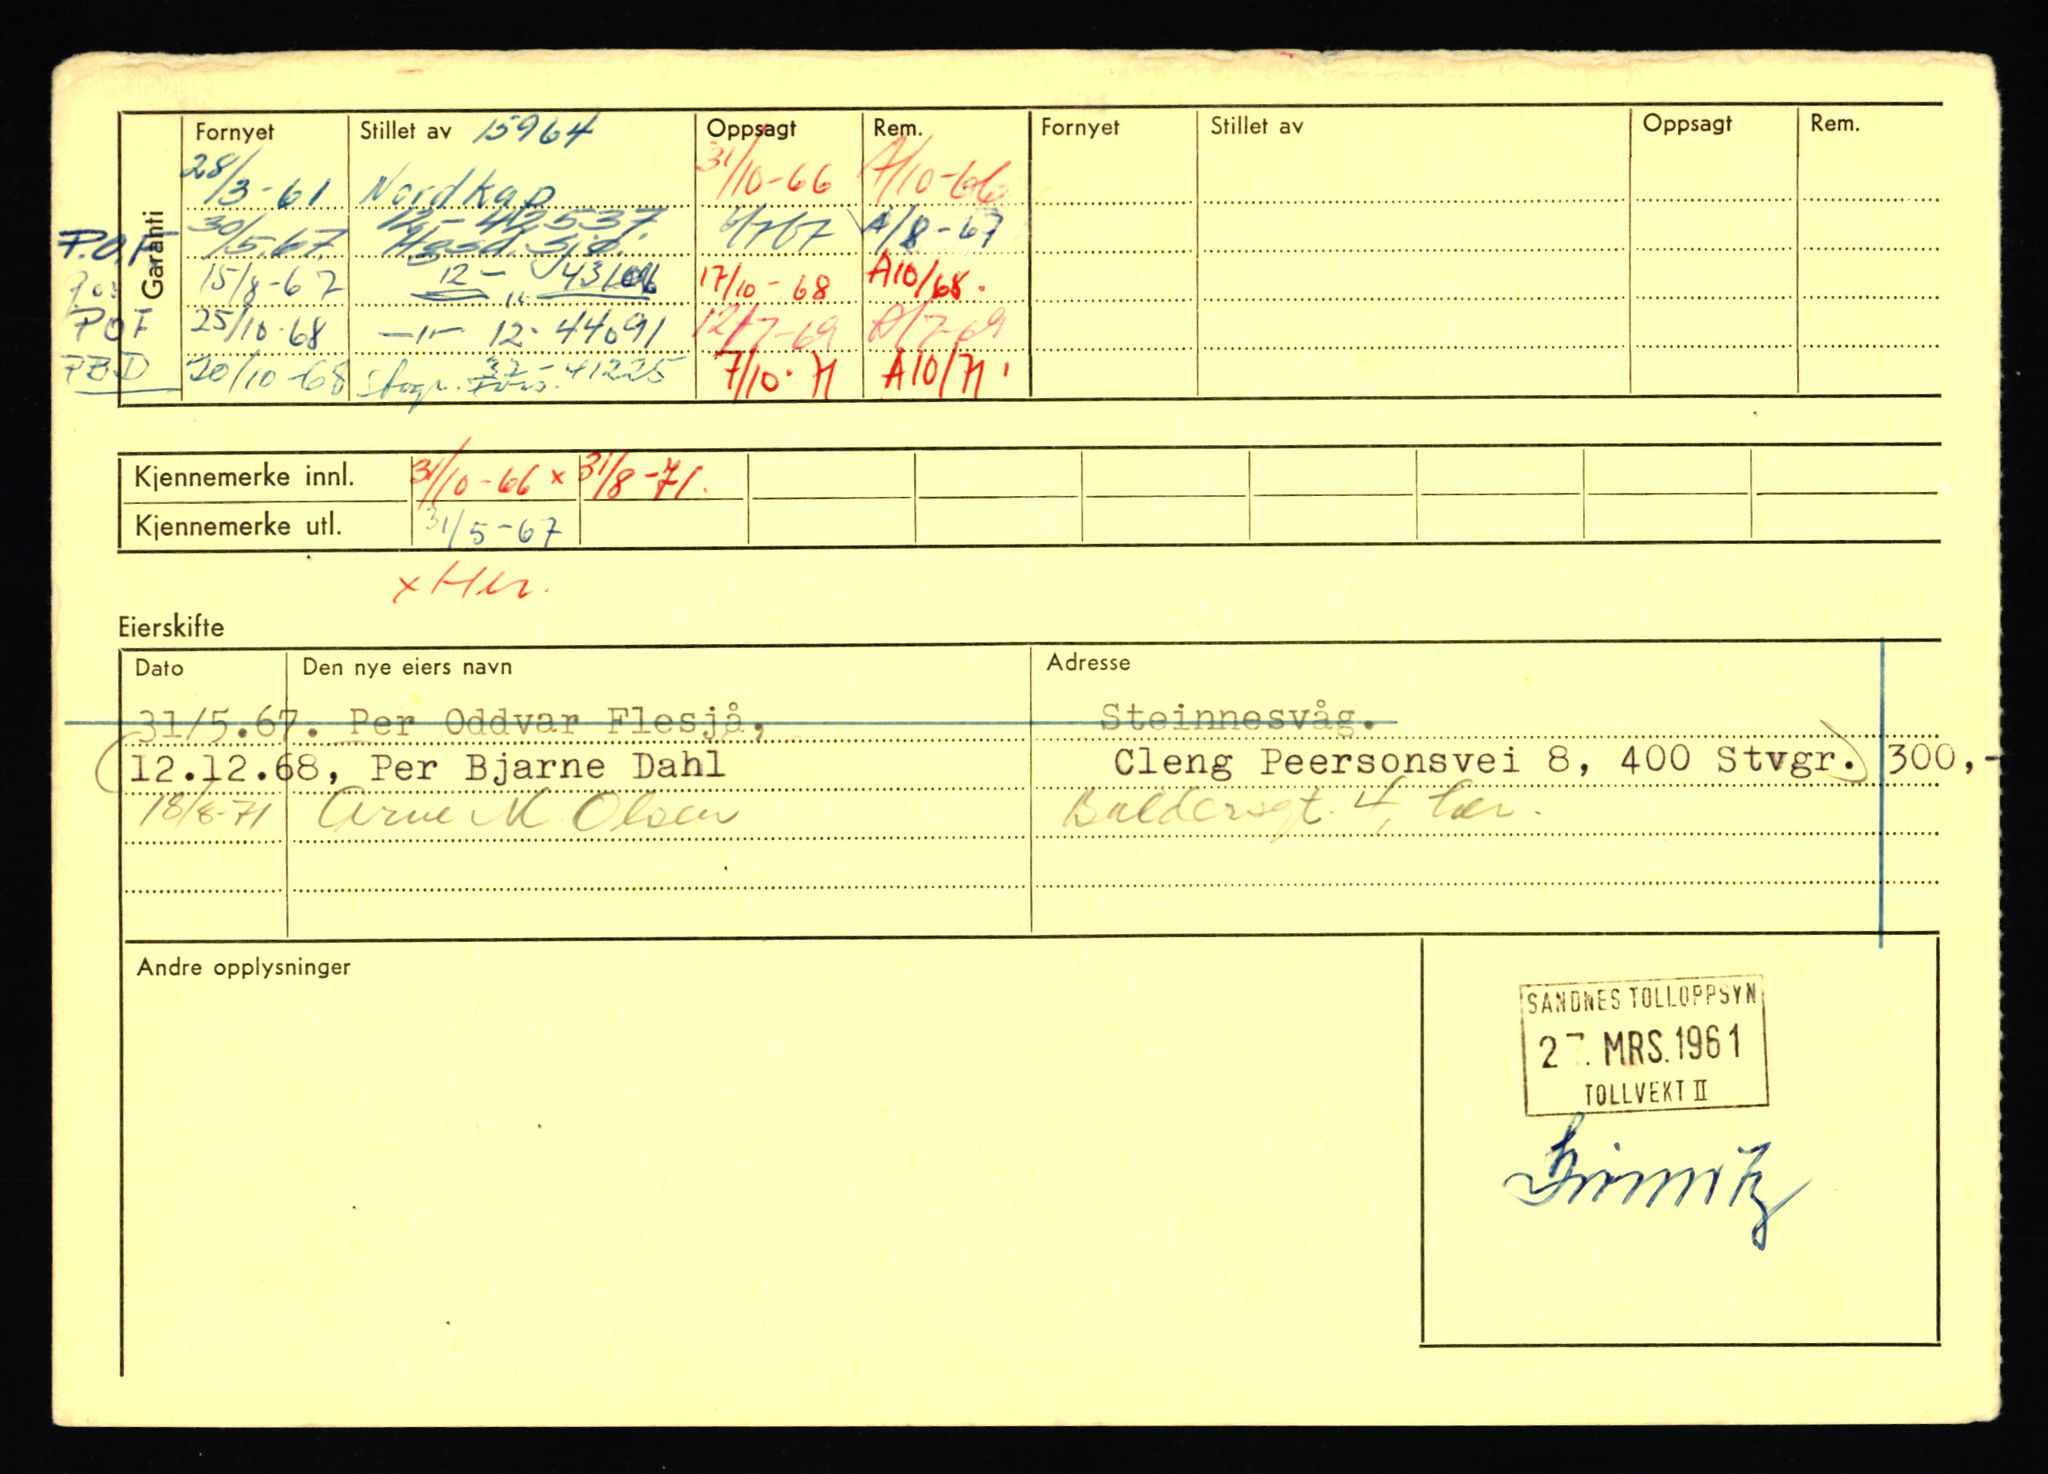 Garanti
Fornyet Stillet av 15964 Oppsagt Rem. Fornyet Stillet av Oppsagt Rem.
28/3-61 Nordkap 31/10-66 A/10-66
P.O.F. 30/5.67. 12-42537. Hgsd. Sjø. A/8-67
15/8-67 12- 43106 17/10-68 A10/68.
POF 25/10-68 -"- 12-44091 12/7-69 A/7-69
PBD 20/10-68 32-41225 7/10-71 A10/71.
Kjennemerke innl. 31/10-66 x 31/8-71.
Kjennemerke utl. 31/5-67
x Her.
Eierskifte
Dato Den nye eiers navn Adresse
31/5.67. Per Oddvar Flesjå, Steinnesvåg.
(12.12.68, Per Bjarne Dahl Cleng Peersonsvei 8, 400 Stvgr.) 300,-
18/8-71 Arne M Olsen Baldersgt. 4, her.
Andre opplysninger
SANDNES TOLLOPPSYN
27. MRS. 1961
TOLLVEKT II